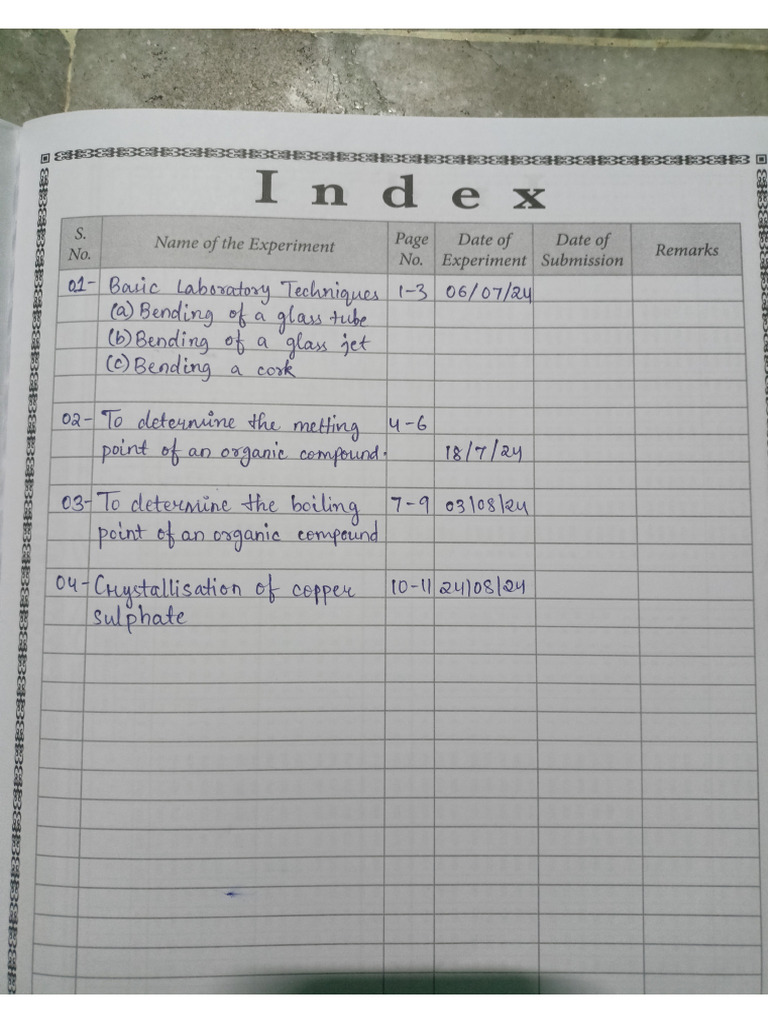 Index
S. No. Name of the Experiment Page No. Date of Experiment Date of Submission Remarks
01- Basic Laboratory Techniques 1-3 06/07/24
(a) Bending of a glass tube
(b) Bending of a glass jet
(c) Bending a cork
02- To determine the melting 4-6
point of an organic compound. 18/7/24
03- To determine the boiling 7-9 03/08/24
point of an organic compound
04- Crystallisation of copper 10-11 24/08/24
sulphate